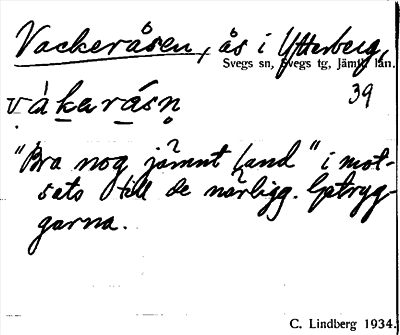 Vackeråsen, ås i Ytterberg,
Svegs sn, Svegs tg, Jämtl. län.
39
vàkarásn̥
"Bra nog jämnt land" i mot-
sats till de närligg.
garna.
C. Lindberg 1934.